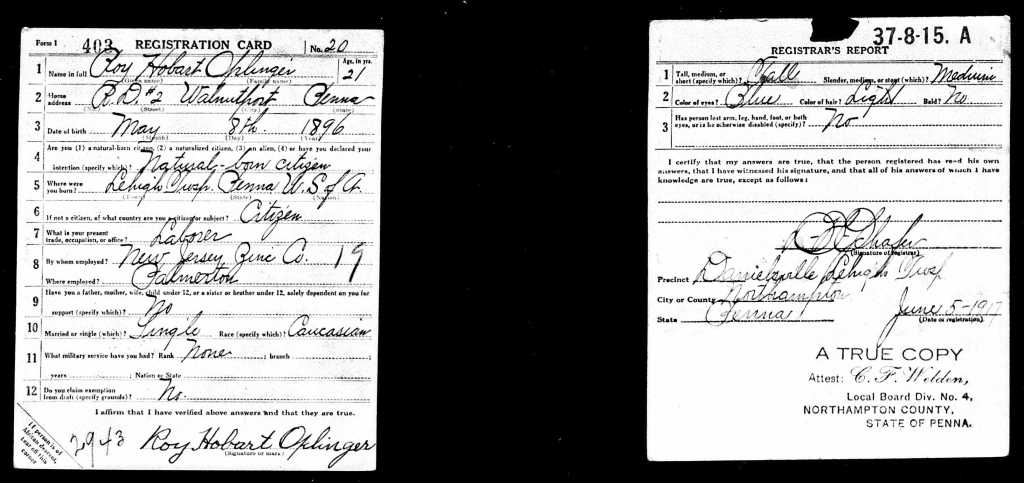 Form 1 403 REGISTRATION CARD No. 20
1 Name in full Roy Hobart Oplinger Age, in yrs. 21
(Given name) (Family name)
2 Home address R.D. #2 Walnutport Penna
(No.) (Street) (City) (State)
3 Date of birth May 8th 1896
(Month) (Day) (Year)
4 Are you (1) a natural-born citizen, (2) a naturalized citizen, (3) an alien, (4) or have you declared your
intention (specify which)? Natural-born citizen
5 Where were you born? Lehigh Twsp. Penna U.S of A.
(Town) (State) (Nation)
6 If not a citizen, of what country are you a citizen or subject? Citizen
7 What is your present trade, occupation, or office? Laborer
8 By whom employed? New Jersey Zinc Co. 19
Where employed? Palmerton
9 Have you a father, mother, wife, child under 12, or a sister or brother under 12, solely dependent on you for
support (specify which)? No
10 Married or single (which)? Single Race (specify which)? Caucasian
11 What military service have you had? Rank None ; branch ;
years ; Nation or State
12 Do you claim exemption from draft (specify grounds)? No.
I affirm that I have verified above answers and that they are true.
If person is of African descent, tear off this corner
2943 Roy Hobart Oplinger
(Signature or mark)
37-8-15. A
REGISTRAR'S REPORT
1 Tall, medium, or short (specify which)? Tall Slender, medium, or stout (which)? Medium
2 Color of eyes? Blue Color of hair? Light Bald? No
3 Has person lost arm, leg, hand, foot, or both eyes, or is he otherwise disabled (specify)? No
I certify that my answers are true, that the person registered has read his own
answers, that I have witnessed his signature, and that all of his answers of which I have
knowledge are true, except as follows:
(Signature of registrar)
Precinct Danielsville Lehigh Twsp
City or County Northampton
State Penna June 5-1917
(Date of registration)
A TRUE COPY
Attest: C. F. Welden,
Local Board Div. No. 4,
NORTHAMPTON COUNTY,
STATE OF PENNA.